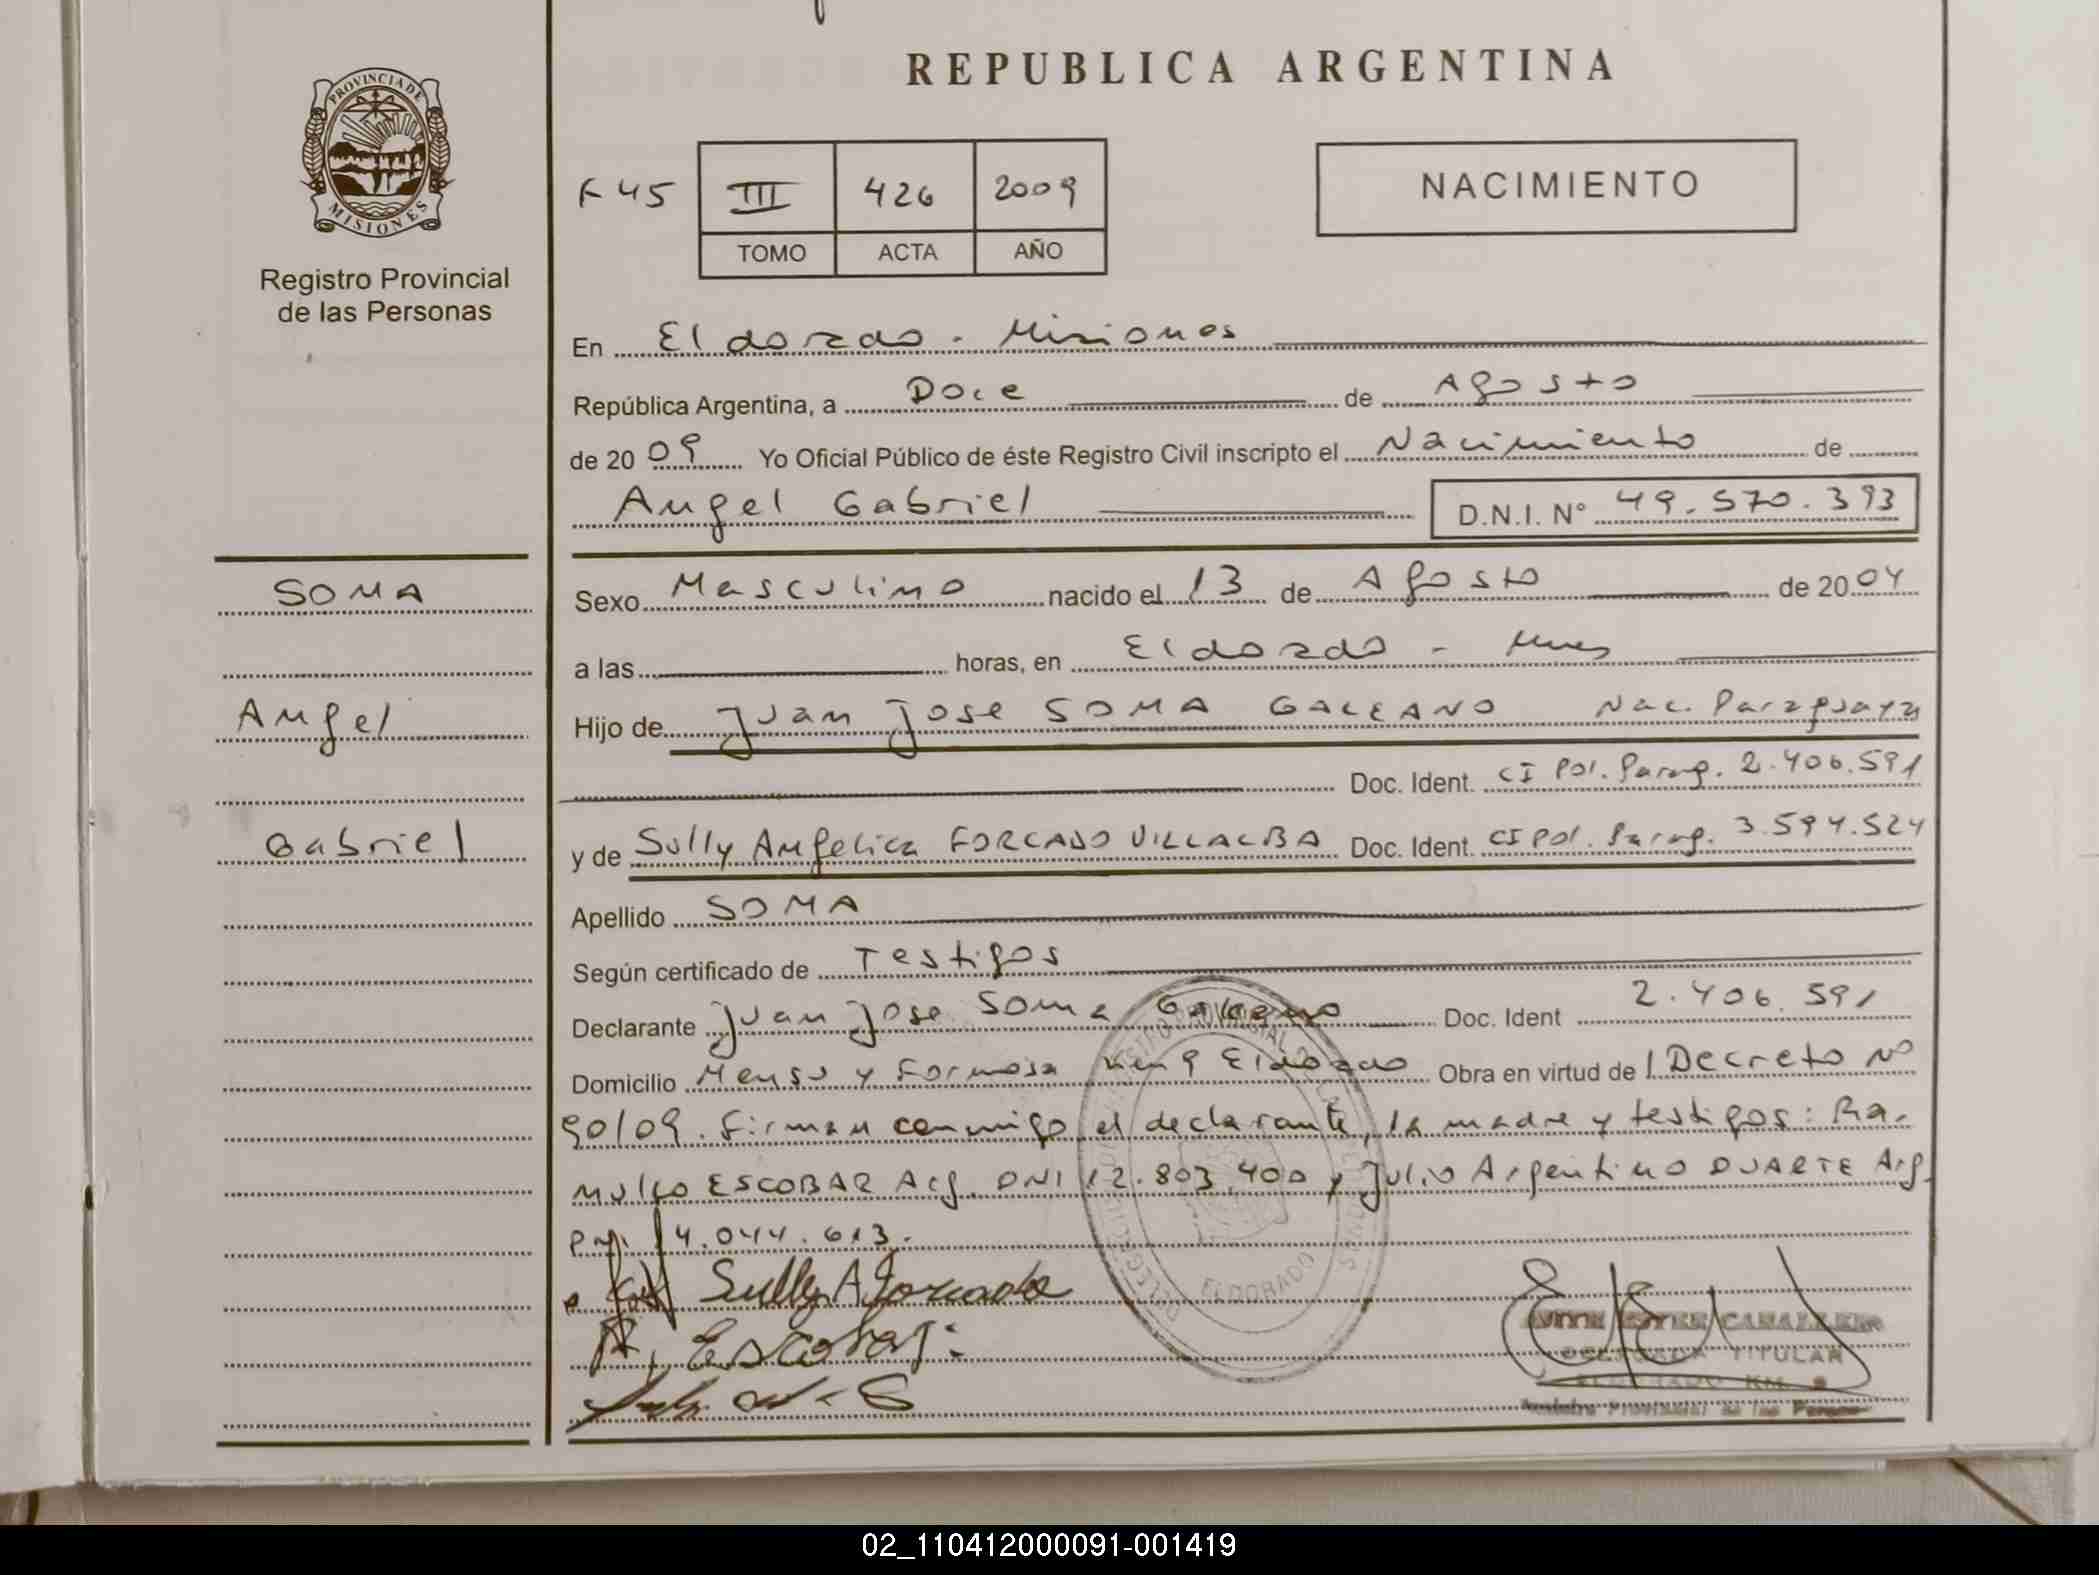 REPUBLICA ARGENTINA
PROVINCIA DE
MISIONES
Registro Provincial
de las Personas
F 45 III 426 2009
TOMO ACTA AÑO
NACIMIENTO
En Eldorado - Misiones
República Argentina, a Doce de Agosto
de 2009 Yo Oficial Público de éste Registro Civil inscripto el Nacimiento de
Angel Gabriel D.N.I. N° 49.570.393
SOMA
Angel
Gabriel
Sexo Masculino nacido el 13 de Agosto de 2004
a las horas, en Eldorado - Mnes
Hijo de Juan Jose SOMA GALEANO Nac. Paraguaya
Doc. Ident. CI Pol. Parag. 2.406.591
y de Sully Angelica FORCADO VILLALBA Doc. Ident. CI Pol. Parag. 3.594.524
Apellido SOMA
Según certificado de Testigos
Declarante Juan Jose Soma Galeano Doc. Ident 2.406.591
Domicilio Mensu y Formosa km 9 Eldorado Obra en virtud de l Decreto N°
90/09. Firman conmigo el declarante, la madre y testigos: Ra-
mulfo ESCOBAR Arg. DNI 12.803.400 y Julio Argentino DUARTE Arg.
14.044.613.
Sully A Forcado
R, Escobar
ELDORADO
ESTER CABALLERO
DELEGADA TITULAR
ELDORADO KM. 9
Registro Provincial de las Personas
02_110412000091-001419